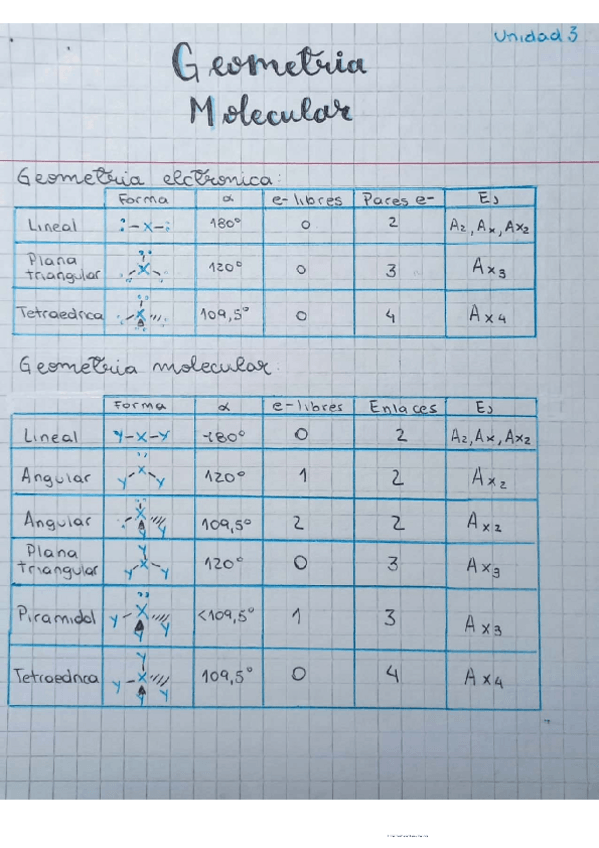 Unidad 3
Geometria
Molecular
Geometria elctronica:
Forma α e- libres Paces e- Ej
Lineal :-X-: 180° 0 2 A2, Ax, Ax2
Plana triangular X 120° 0 3 Ax3
Tetraedrica X 109,5° 0 4 Ax4
Geometria molecular.
Forma α e-libres Enlaces Ej
Lineal Y-X-Y 180° 0 2 A2, Ax, Ax2
Angular Y X Y 120° 1 2 Ax2
Angular X Y Y 109,5° 2 2 Ax2
Plana triangular Y X Y Y 120° 0 3 Ax3
Piramidal Y X Y Y <109,5° 1 3 Ax3
Tetraedrica Y Y X Y Y 109,5° 0 4 Ax4